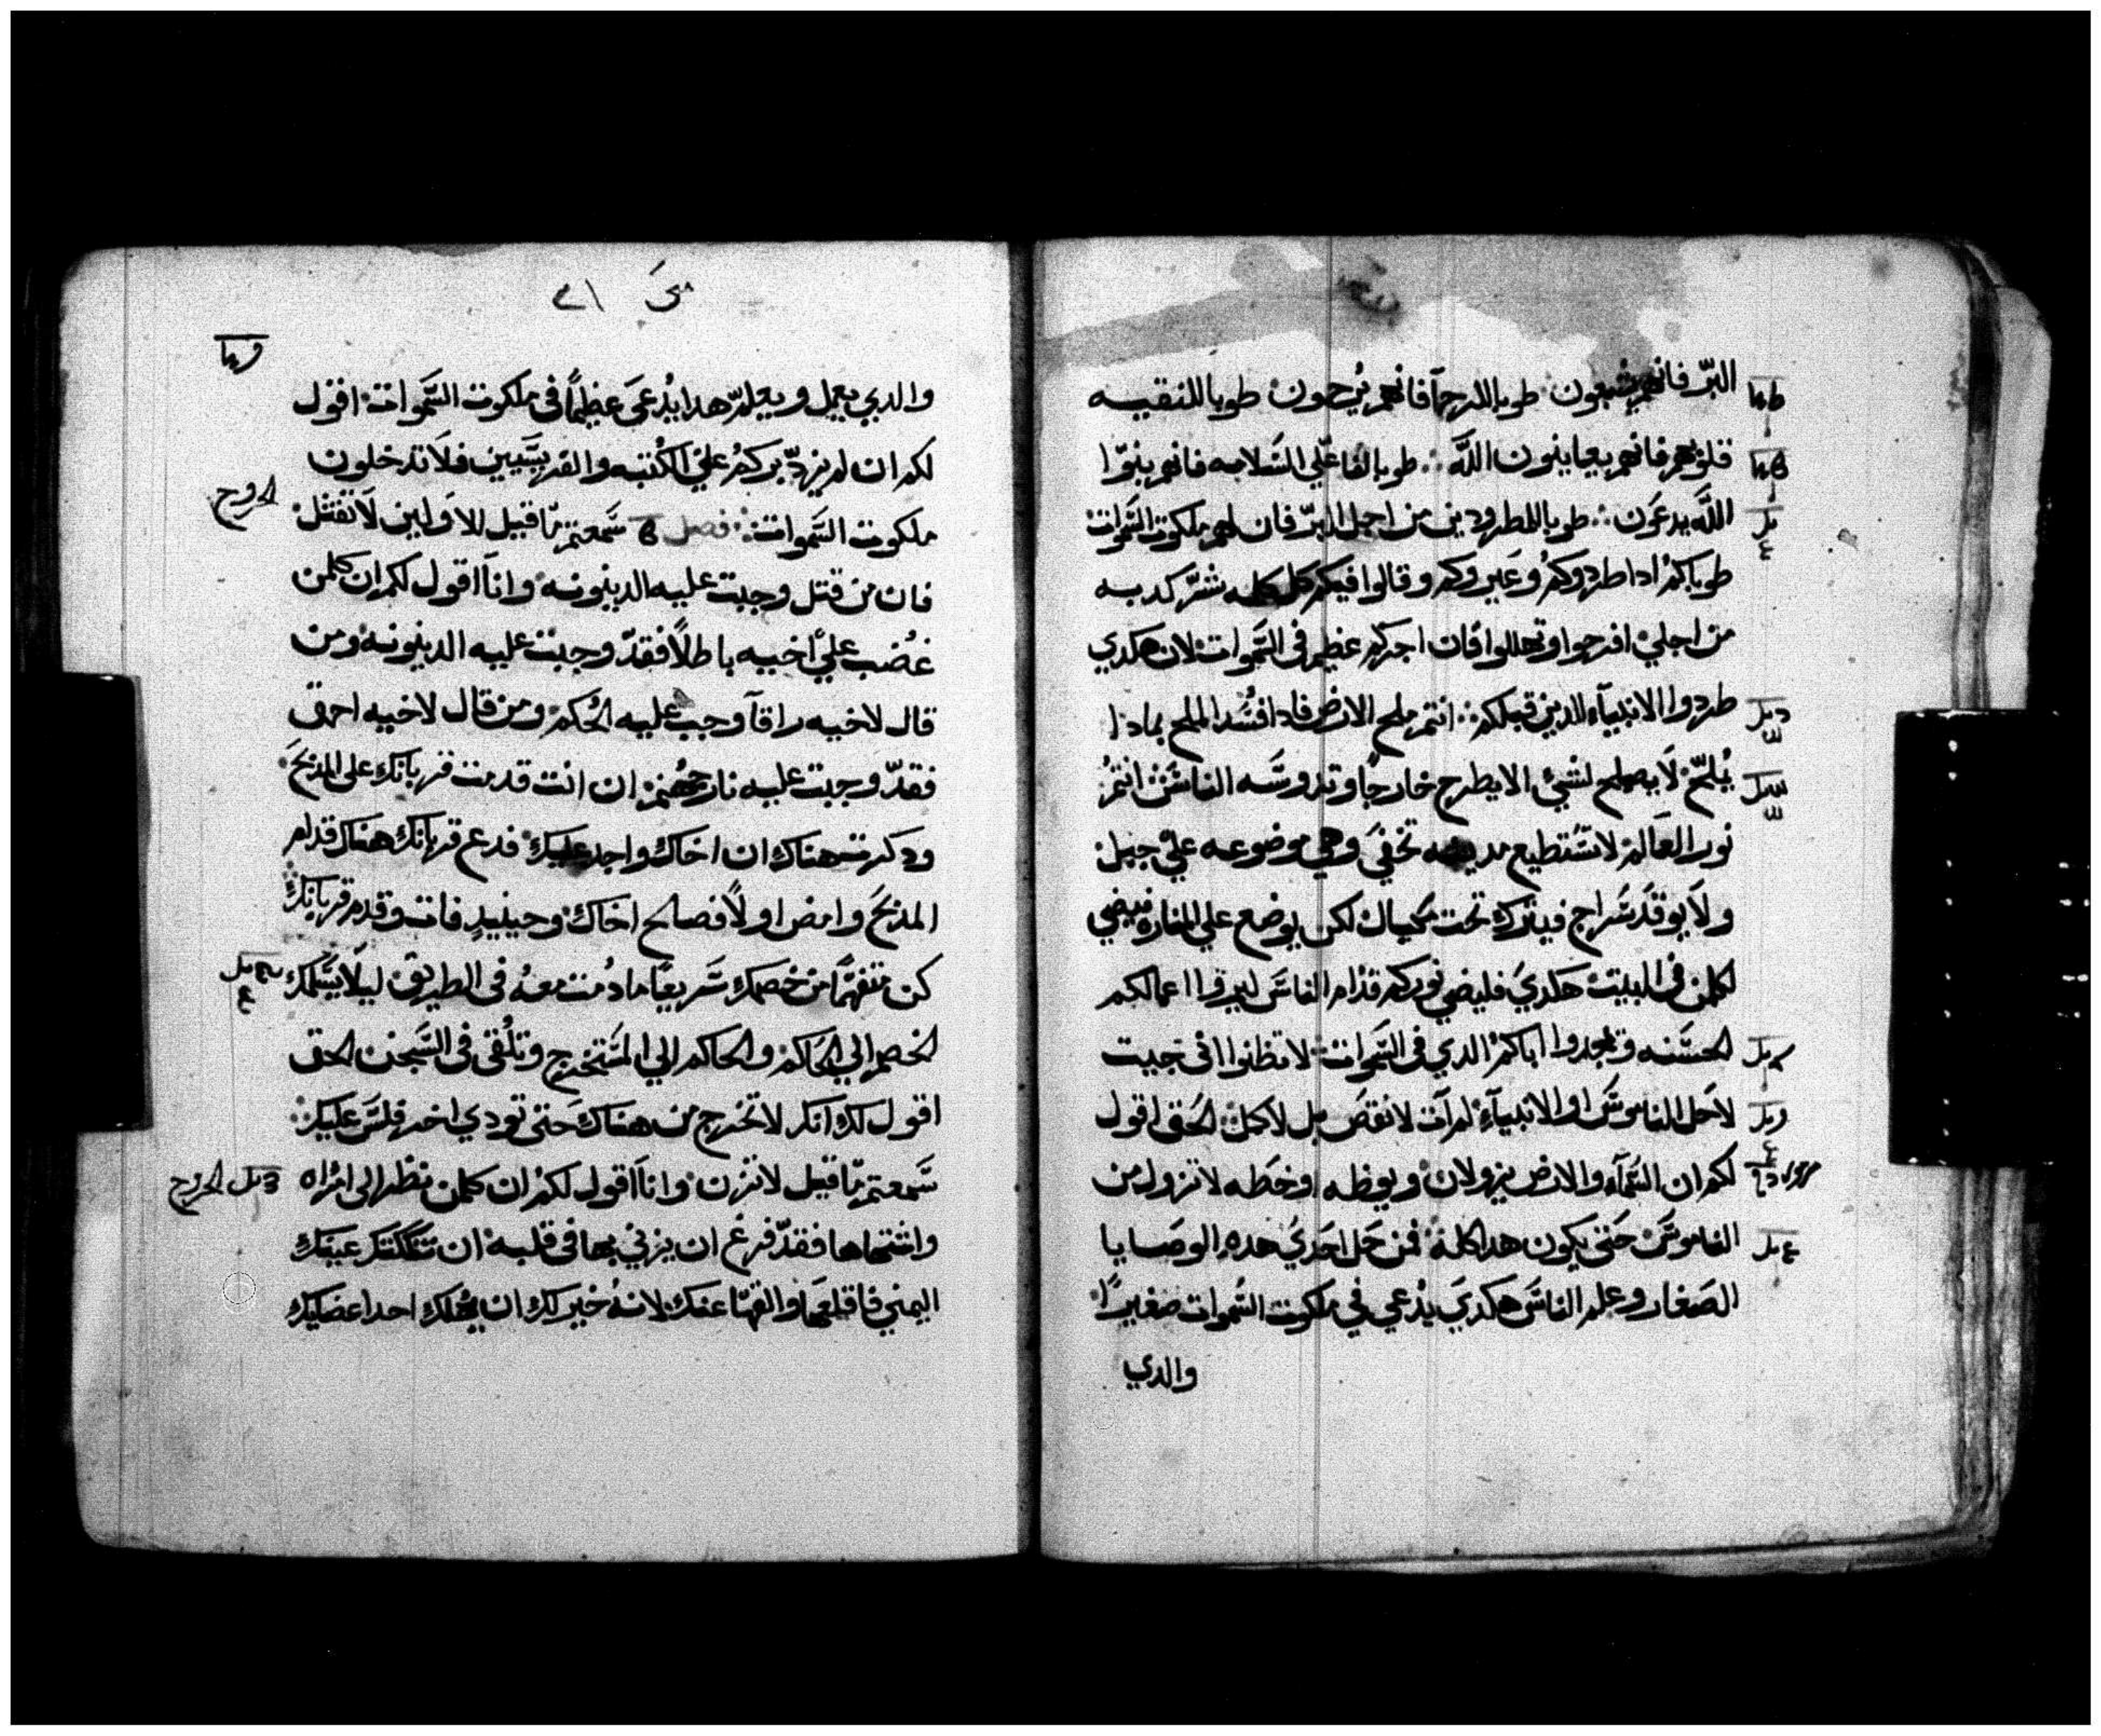 البرّ فانهم يشبعون طوبا للرحمآ فانهم يُرحمون طوبا للنقيه
قلوبهم فانهم يعاينون اللّه طوبا لفاعلي السَلامه فانهم بنوّا
اللّه يدعَون طوبا للمطرودين من اجل البرّ فان لهم ملكوت السَّموات
طوباكمُ ادا طردوكمُ وعَيروكم وقالوا فيكم كل كلمه شرّ كدبه
من اجلي افرحوا وتهللوا فان اجركم عظيم في السَّموات لان هكدي
طردوا الانبيآء الدين قبلكم انتم ملح الارض فادا فسَد الملح بمادا
يُملحّ لَا يصلح لشي الا يطرح خارجًا وتدوسَه الناسَ انتمُ
نور العَالم لا تسَتطيع مدينه تخفىَ وهي موضوعه عليَ جبل
ولَا يوقدَ سَراج فيترك تحت مكيال لكن يوضع علي المناره فيضي
لكلمن في البيت هكديَ فليضي نوركم قدام الناسَ ليروا اعمالكم
الحسَنه ويمجدوا اباكمُ الدي في السَّموات لا تظنوا اني جيت
لاحَل الناموسَ او الانبيآء لم آت لانقضَ بل لاكمل الحَق اقول
لكم ان السَّمآء والارض يزولان ويوطه او خطَه لا تزول من
الناموسَ حَتي يكون هدا كله فمن حَل احَديَ هده الوصَايا
الصَغار وعلم الناسَ هكديَ يُدعي في ملكوت السَّموات صغيرًا
والدي
متىَ
والدي يعمل ويعلمّ هدا يُدعىَ عظيمًا في ملكوت السَّموات اقول
لكم ان لم يزدّ بركمُ عليَ الكتبه والفريسَيين فلَا تدخلون
ملكوت السَّموات فصل سَمعتم مّا قيل للاوَلين لَا تقتل
فان من قتل وجبت عليه الدينونه وانآ اقول لكم ان كلمن
غضب عليَ اخيه باطلًا فقدّ وجبت عليه الدينونه ومن
قال لاخيه راقآ وجب عليه الحُكم ومن قال لاخيه احمق
فقدّ وجبت عليه نار جهنم ان انت قدمت قربانك على المدبحَ
ودكرت هناك ان اخاك واجد عليك فدع قربانك هناك قدام
المدبحَ وامض اولًا فصالح اخاك وحينيدٍ فات وقدم قربانك
كن متفهمًا من خصمك سَريعًا ما دُمت معهُ في الطريق ليلَا يسَلمك
الخصم الي الحَاكم والحاكم الي المسَتخرج وتلُقى في السَّجن الحق
اقول لك انك لا تخرج من هناك حَتى تودي اخر فلسَ عليك
سَمعتم مّا قيل لا تزن وانآ اقول لكمُ ان كلمن نظر الى امُراه
واشتهاها فقدّ فرغ ان يزني بها في قلبه ان شككتك عينك
اليمني فاقلعهَا والقهّا عنك لانهُ خير لك ان يهلك احد اعضايك
الخروج
الخروج